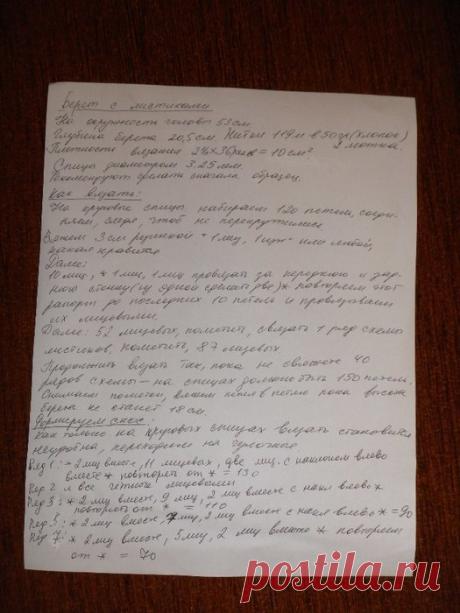 Берет с листиками
На окружность головы 53 см
Глубина берета 20,5 см. Нитки 119 м в 50 гр (хлопок)
2 мотка.
Плотность вязания 26х36 рядов = 10 см²
Спицы диаметром 3.25 мм.
Рекомендуют сделать сначала образец.
Как вязать:
На круговые спицы набираем 120 петель, соеди-
няем, следя, чтоб не перекрутились
Вяжем 3 см резинкой - 1 лиц, 1 изн - или любой,
какая нравится
Далее:
10 лиц, * 1 лиц, 1 лиц провязать за переднюю и зад-
нюю стенку (из одной сделать две) * повторяем этот
рапорт до последних 10 петель и провязываем
их лицевыми.
Далее: 52 лицевых, пометить, связать 1 ряд схемы
листиков, пометить, 87 лицевых.
Продолжить вязать так, пока не свяжете 40
рядов схемы - на спицах должно быть 150 петель.
Снимаем пометки, вяжем петля в петлю пока высота
берета не станет 18 см.
Формируем скос:
Как только на круговых спицах вязать становится
неудобно, переходим на чулочные
Ряд 1: * 2 лиц вместе, 11 лицевых, две лиц. с наклоном влево
вместе * повторять от * = 130
Ряд 2 и все четные лицевыми
Ряд 3: * 2 лиц вмест, 9 лиц, 2 лиц вмест с накл влево *
повторять от * = 110
Ряд 5: * 2 лиц вмест, 7 лиц, 2 лиц вмест с накл влево * = 90
Ряд 7: * 2 лиц вмест, 5 лиц, 2 лиц вместе * повторяем
от * = 70
postila.ru